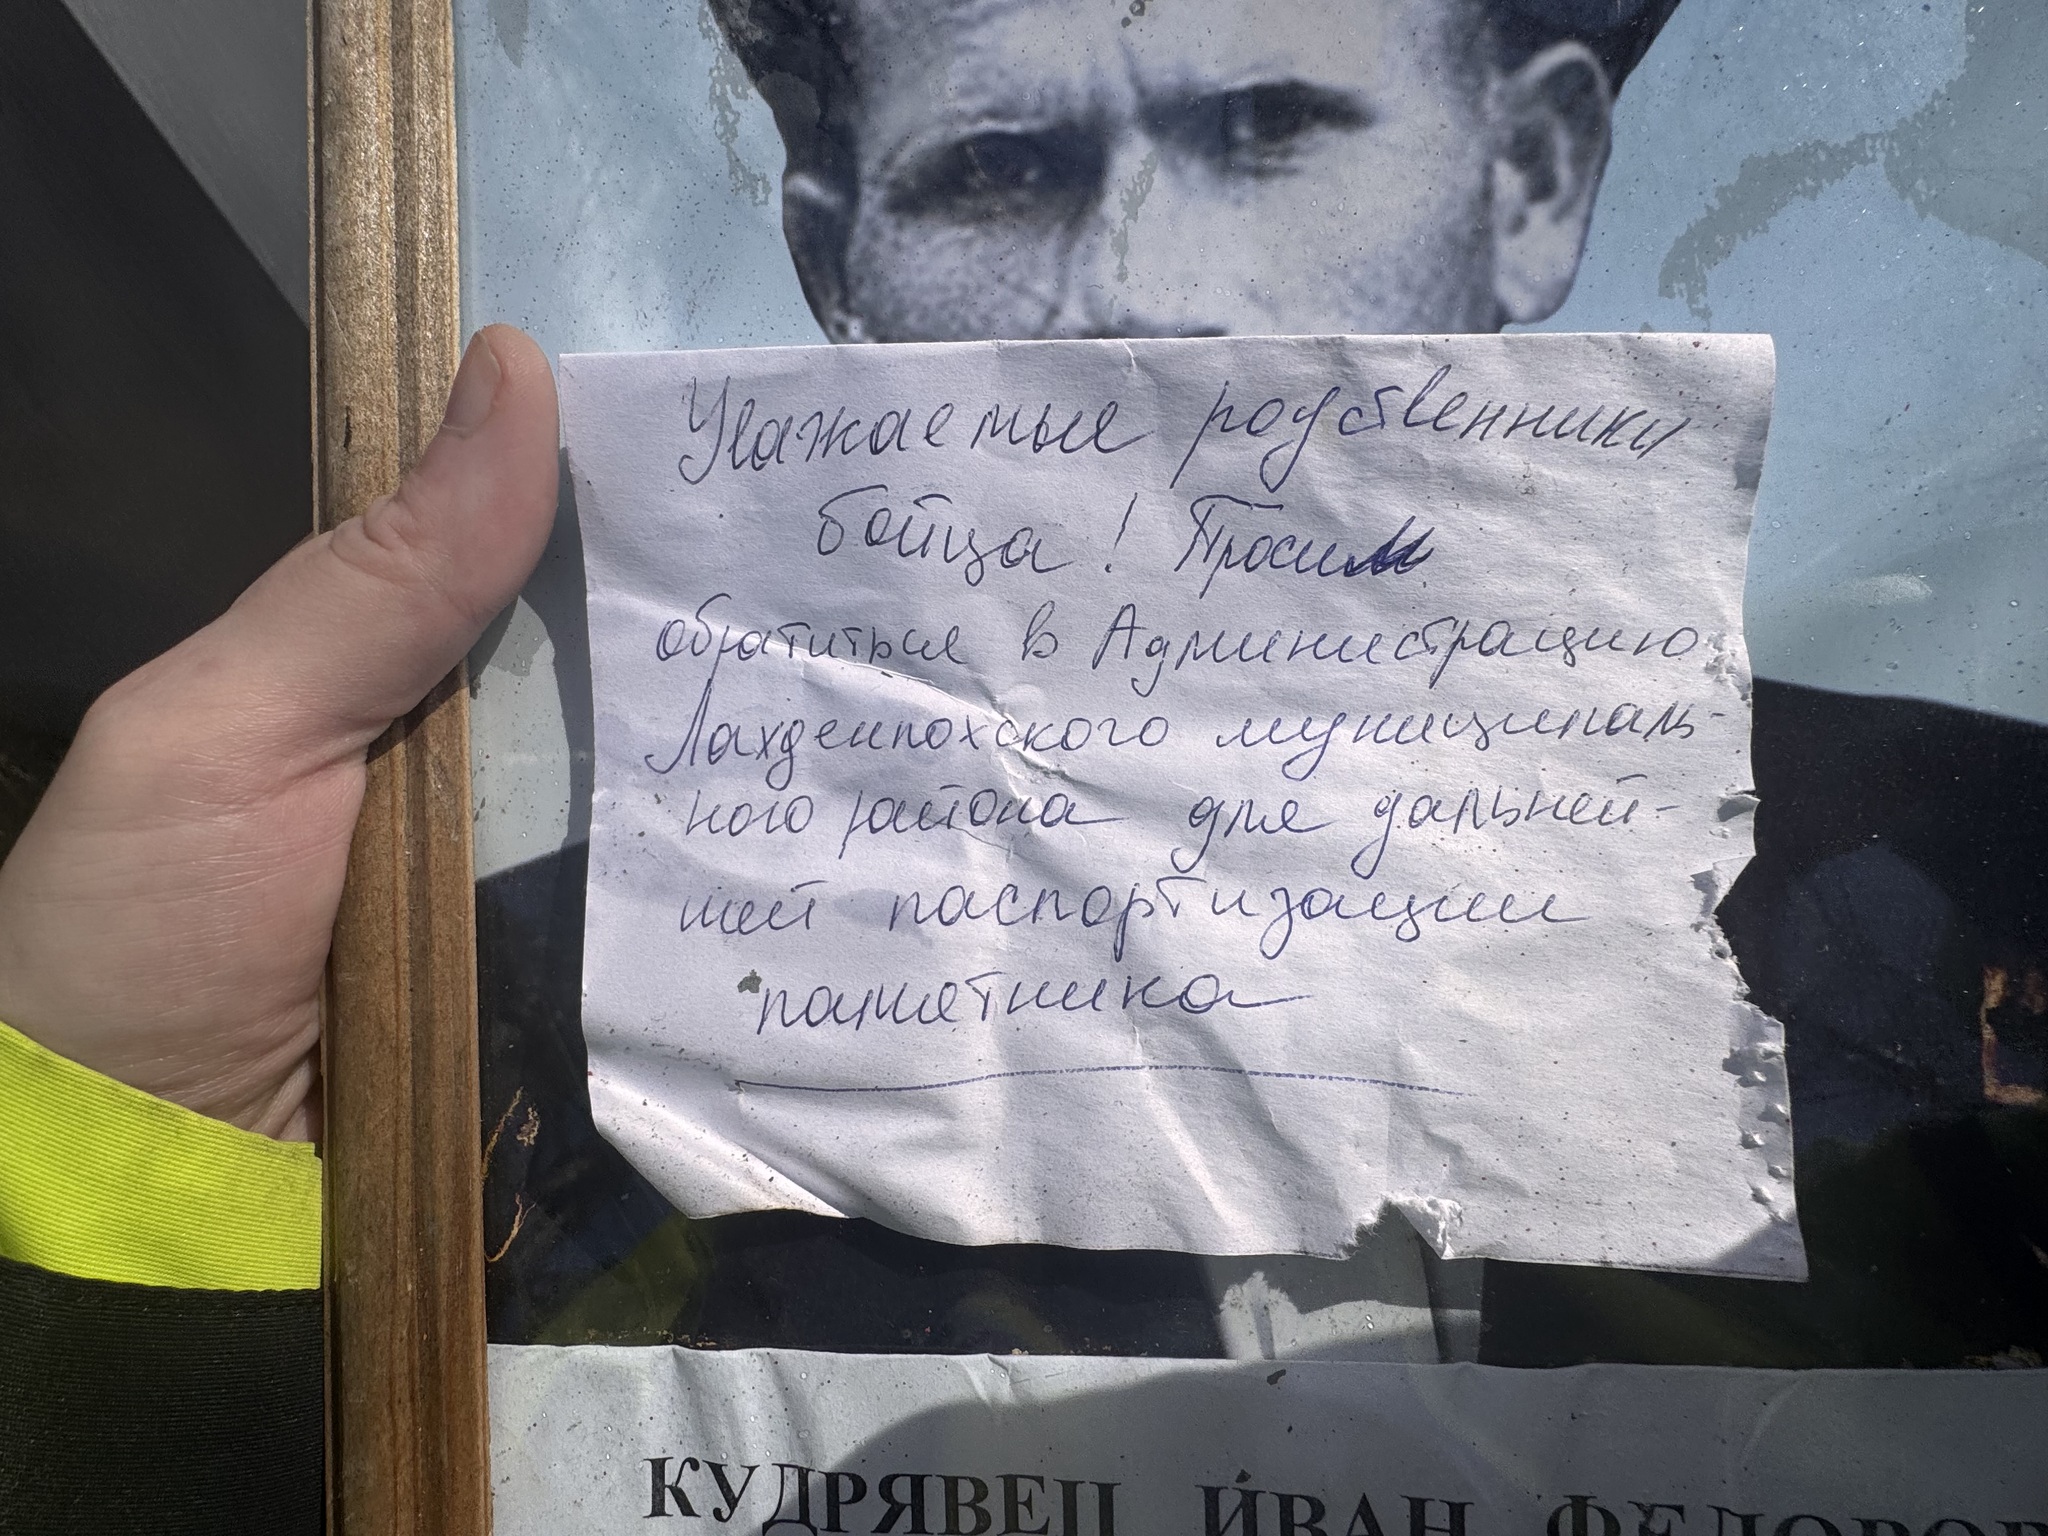 Уважаемые родственники
бойца! Просим
обратиться в Администрацию
Лахденпохского муниципаль-
ного района для дальней-
шей паспортизации
памятника
КУДРЯВЕЦ ИВАН ФЕДОРОВ